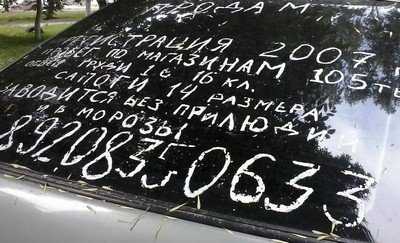 ПРОДАМ
РЕГИСТРАЦИЯ 2007 г
ПРОБЕГ ПО МАГАЗИНАМ 105 ты
ОБЪЁМ ГРУДИ 1.6 16 КЛ.
САПОГИ 14 РАЗМЕРА
ЗАВОДИТСЯ БЕЗ ПРЕЛЮДИЙ
И В МОРОЗЫ
89208350633